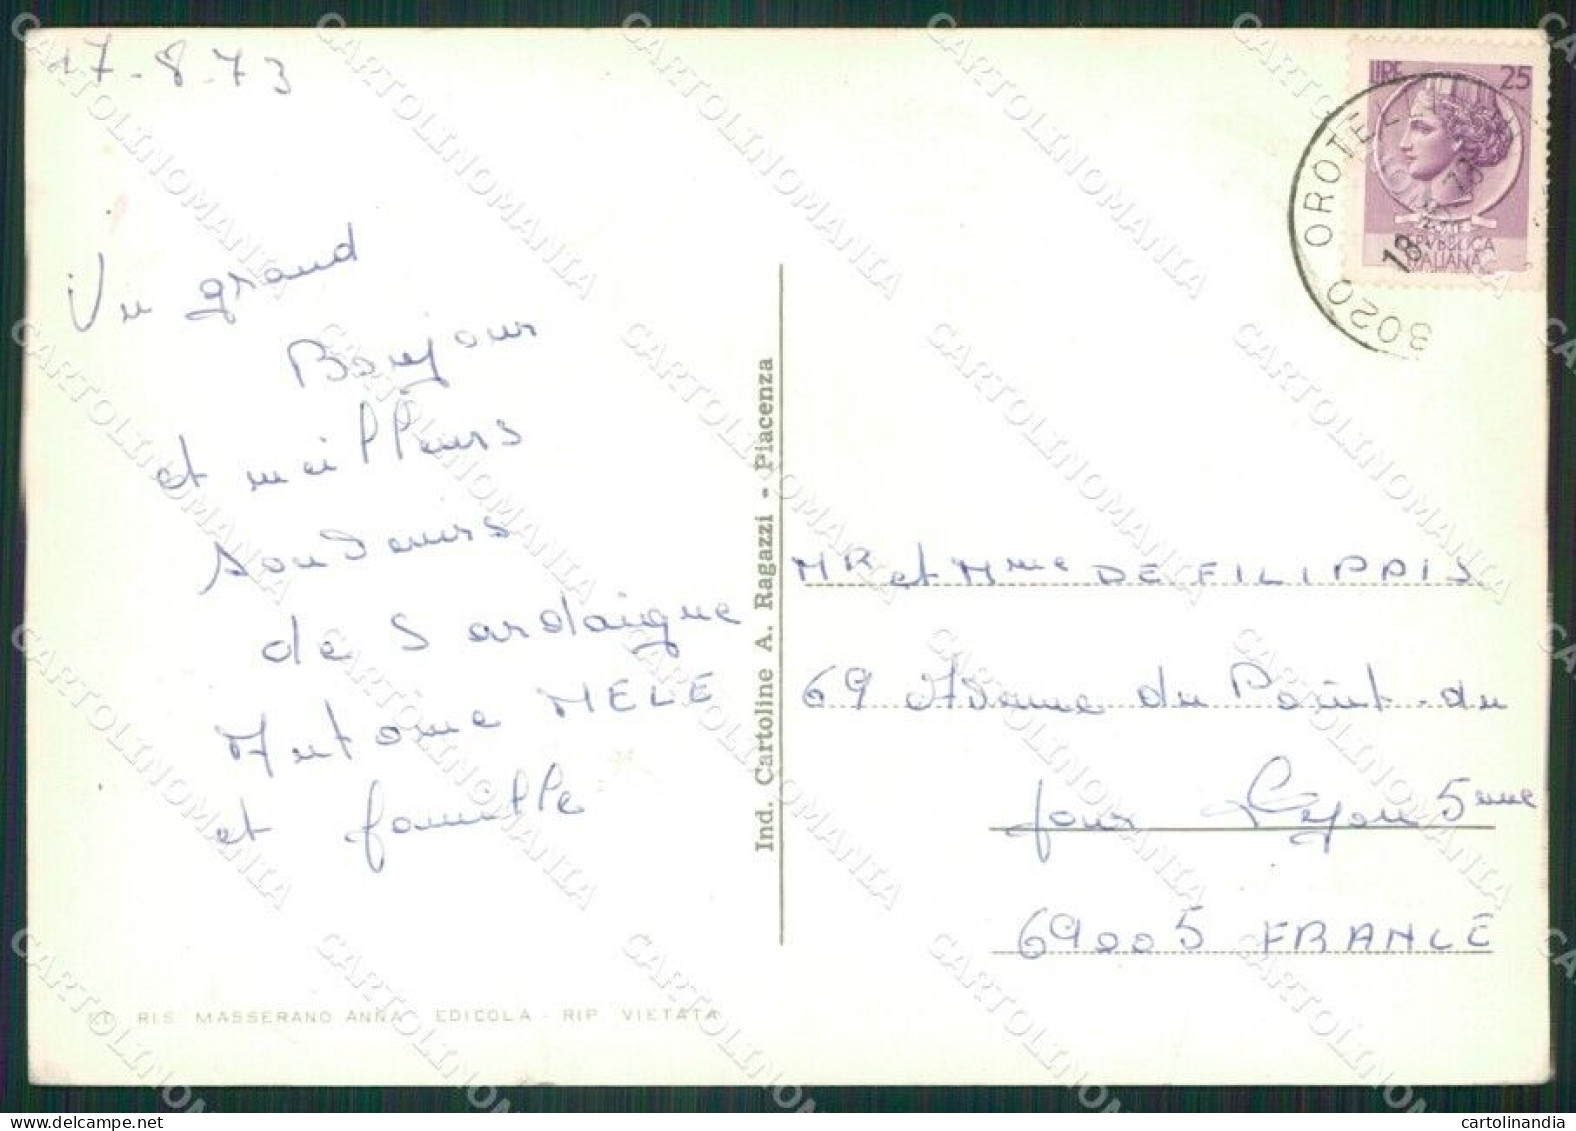 17-8-73
Un grand
Bonjour
et meilleurs
souvenirs
de Sardaigne
Antoine MELE
et famille
Ind. Cartoline A. Ragazzi - Piacenza
RIS. MASSERANO ANNA EDICOLA - RIP. VIETATA
LIRE 25
REPVBBLICA
ITALIANA
8020 OROTEL
18
73
MR et Mme DE FILIPPIS
69 Avenue du Point-du
jour Lyon 5eme
69005 FRANCE
CARTOLINOMANIA
cartolinandia